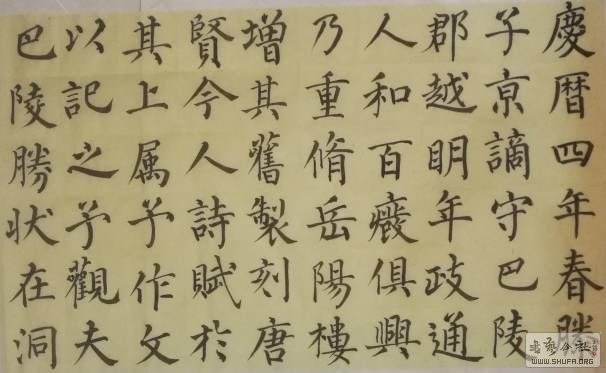 慶暦四年春滕
子京謫守巴陵
郡越明年政通
人和百癈俱興
乃重脩岳陽樓
增其舊製刻唐
賢今人詩賦於
其上属予作文
以記之予觀夫
巴陵勝状在洞
WWW.SHUFA.ORG